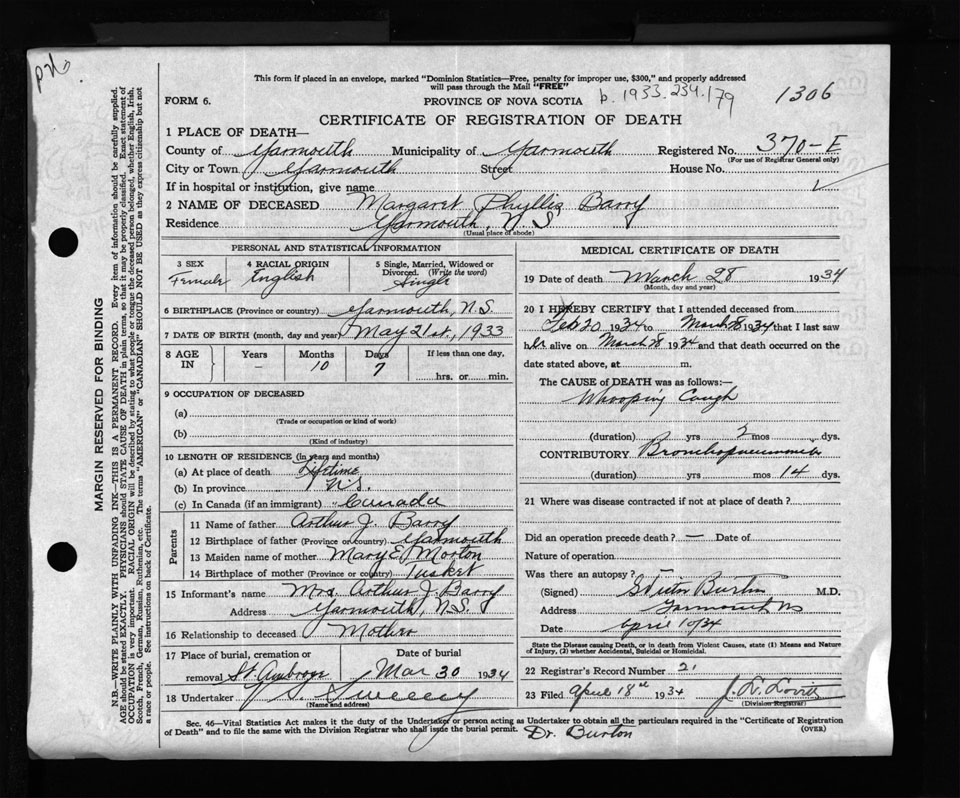 This form if placed in an envelope, marked "Dominion Statistics—Free, penalty for improper use, $300," and properly addressed
will pass through the Mail "FREE"
FORM 6.
PROVINCE OF NOVA SCOTIA
b. 1933.234.179
1306
CERTIFICATE OF REGISTRATION OF DEATH
1 PLACE OF DEATH—
County of Yarmouth Municipality of Yarmouth Registered No. 370-E
(For use of Registrar General only)
City or Town Yarmouth Street House No.
If in hospital or institution, give name
2 NAME OF DECEASED Margaret Phyllis Barry
Residence Yarmouth, N.S
(Usual place of abode)
PERSONAL AND STATISTICAL INFORMATION
3 SEX Female
4 RACIAL ORIGIN English
5 Single, Married, Widowed or Divorced. (Write the word) Single
6 BIRTHPLACE (Province or country) Yarmouth, N.S.
7 DATE OF BIRTH (month, day and year) May 21st, 1933
8 AGE IN Years – Months 10 Days 7 If less than one day, hrs. or min.
9 OCCUPATION OF DECEASED
(a)
(Trade or occupation or kind of work)
(b)
(Kind of industry)
10 LENGTH OF RESIDENCE (in years and months)
(a) At place of death Lifetime
(b) In province N.S.
(c) In Canada (if an immigrant) Canada
Parents
11 Name of father Arthur J. Barry
12 Birthplace of father (Province or country) Yarmouth
13 Maiden name of mother Mary E. Morton
14 Birthplace of mother (Province or country) Tusket
15 Informant's name Mrs. Arthur J. Barry
Address Yarmouth, N.S.
16 Relationship to deceased Mother
17 Place of burial, cremation or removal St. Ambrose
Date of burial Mar 30 1934
18 Undertaker V S Sweeny
(Name and address)
MEDICAL CERTIFICATE OF DEATH
19 Date of death March 28 1934
(Month, day and year)
20 I HEREBY CERTIFY that I attended deceased from
Feb 20 1934 to March 28 1934 that I last saw
her alive on March 28 1934 and that death occurred on the
date stated above, at m.
The CAUSE of DEATH was as follows:
Whooping Cough
(duration) yrs 2 mos dys.
CONTRIBUTORY Bronchopneumonia
(duration) yrs mos 14 dys.
21 Where was disease contracted if not at place of death?
Did an operation precede death? — Date of
Nature of operation
Was there an autopsy? —
(Signed) Burton M.D.
Address Yarmouth NS
Date April 10/34
State the Disease causing Death, or in death from Violent Causes, state (1) Means and Nature of Injury, (2) whether Accidental, Suicidal or Homicidal.
22 Registrar's Record Number 21
23 Filed April 18th 1934 J. D. Lovitt
(Division Registrar)
Sec. 46—Vital Statistics Act makes it the duty of the Undertaker or person acting as Undertaker to obtain all the particulars required in the "Certificate of Registration
of Death" and to file the same with the Division Registrar who shall issue the burial permit. (OVER)
Dr. Burton
MARGIN RESERVED FOR BINDING
N.B.—WRITE PLAINLY WITH UNFADING INK—THIS IS A PERMANENT RECORD. Every item of information should be carefully supplied.
AGE should be stated EXACTLY. PHYSICIANS should STATE CAUSE OF DEATH in plain terms, so that it may be properly classified. Exact statement of
OCCUPATION is very important. RACIAL ORIGIN will be described by stating to what people or tongue the deceased person belonged, whether English, Irish,
Scotch, French, German, Russian, Ruthenian, etc. The terms "AMERICAN" or "CANADIAN" SHOULD NOT BE USED as they express citizenship but not
a race or people. See instructions on back of Certificate.